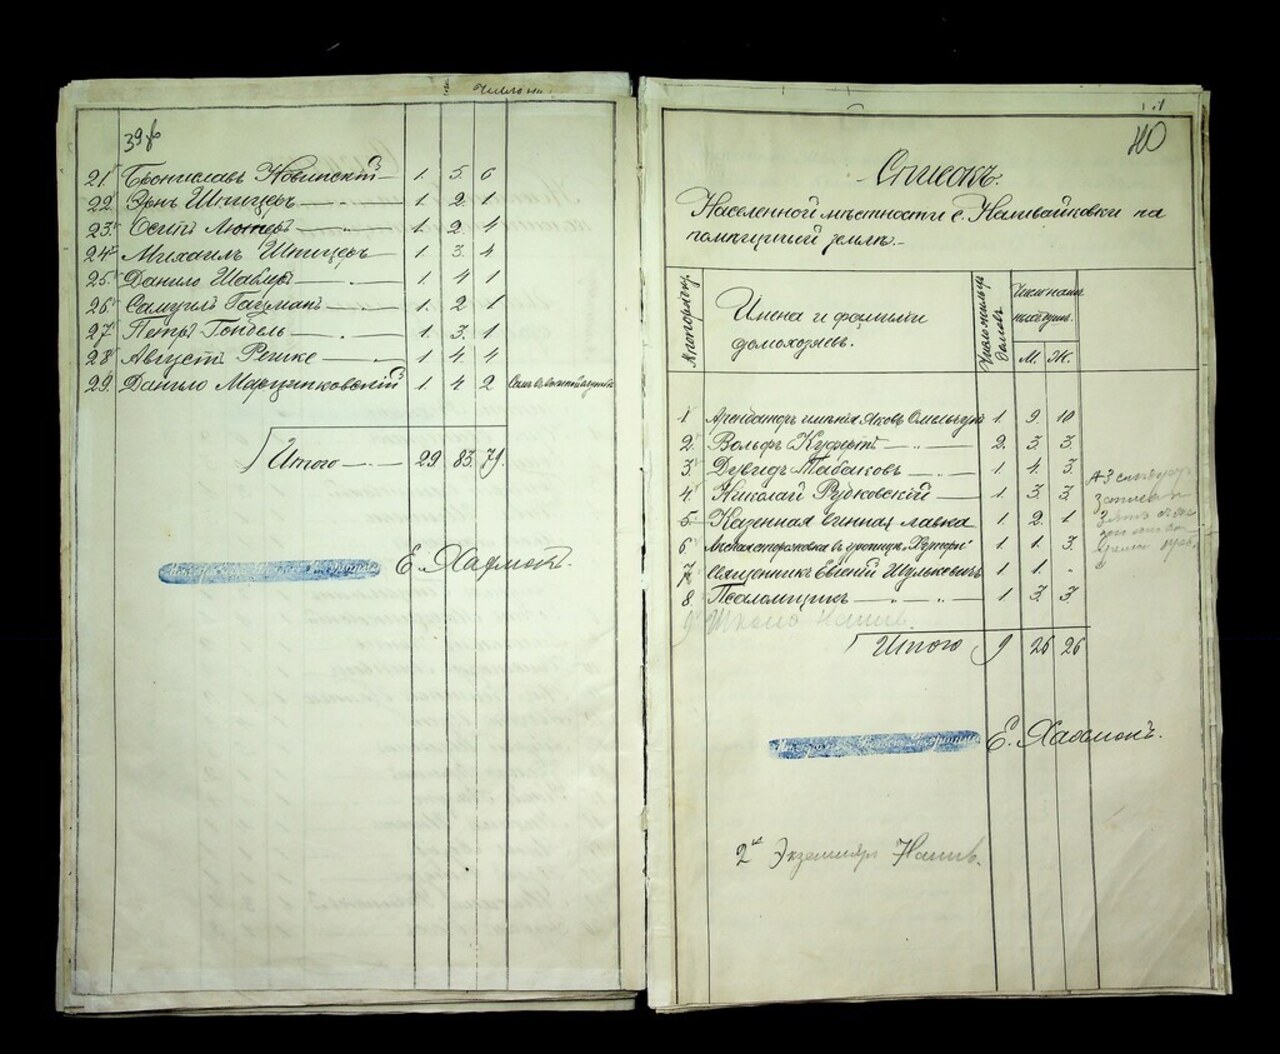 39 об
21. Брониславъ Новинскій 1. 5. 6
22. Эрнъ Шпицеръ 1. 2. 1
23. Осипъ Лютеръ 1. 2. 4
24. Михаилъ Шпицеръ 1. 3. 4
25. Данило 1. 4 1
26. Самуилъ Гацманъ 1. 2 1
27. Петръ 1. 3. 1
28 Августъ Решке 1 4 4
29. Данило Марцинковскій 1. 4 2
Итого 29. 83. 79.
Е. Хафмонъ.
40
Списокъ.
Населенной мѣстности с. Наливайковки на
помѣщичьей землѣ.
№ по порядку.
Имена и фамиліи
домохозяевъ.
Число жилыхъ
домовъ
Число налич
ныхъ душъ.
М. Ж.
1 Арендаторъ имѣнія Яковъ Омельчук 1. 9. 10
2. Вольфъ 2. 3. 3.
3. Дувидъ Табаковъ 1. 4. 3.
4. Николай Рудковскій 1. 3. 3
5. Казенная винная лавка 1. 2. 1
6 Лесная сторожовка в урочищѣ „Хутори" 1. 1. 3.
7. Священникъ Евгеній Шулькевичъ 1. 1. -
8. Псаломщикъ 1. 3. 3.
9 Школа Налив.
Итого 9 26 26
Е. Хафмонъ.
2й Экземпляр Налив.